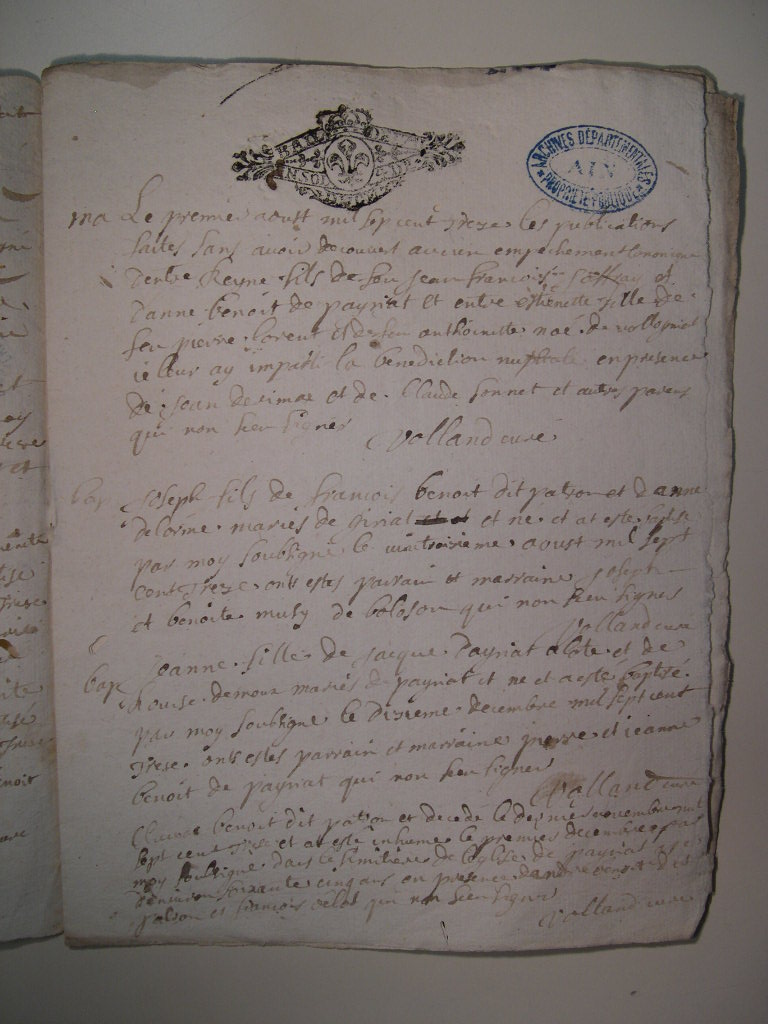 ARCHIVES DÉPARTEMENTALES
AIN
PROPRIÉTÉ PUBLIQUE
ma Le premier aoust mil sept cent treze les publications
faites sans avoir decouvert aucun empechement canonique
entre fils de feu Jean francois et
d'anne benoit de payriat et entre estienette fille de
feu pierre lorent et de feu anthoinette noé de
ie leur ay imparti la benediction nuptiale en presence
de Jean et de Claude bonnet et autres parens
qui non sceu signer
Volland curé
bap Joseph fils de francois benoit dit patron et d anne
delorme mariés de et né et at esté
par moy soubsigné le aoust mil sept
cent treze onts estes parrain et marraine Joseph
et benoite musy de boloson qui non sceu signer
Volland curé
bap Jeanne fille de Jacque et de
Louise demour mariés de payriat et né et a esté baptisé
par moy soubsigné le dixieme decembre mil sept cent
treze onts estes parrain et marraine pierre et jeanne
benoit de payriat qui non sceu signer
Volland curé
Claude benoit dit patron et decedé le dernier novembre mil
sept cent treze et at esté inhumé le premier decembre par
moy soubsigné dans le simitiere de l'eglise de payriat
d'environ soixante cinq ans en presence d'andre benoit dit
patron et francois velat qui non sceu signer
Volland curé